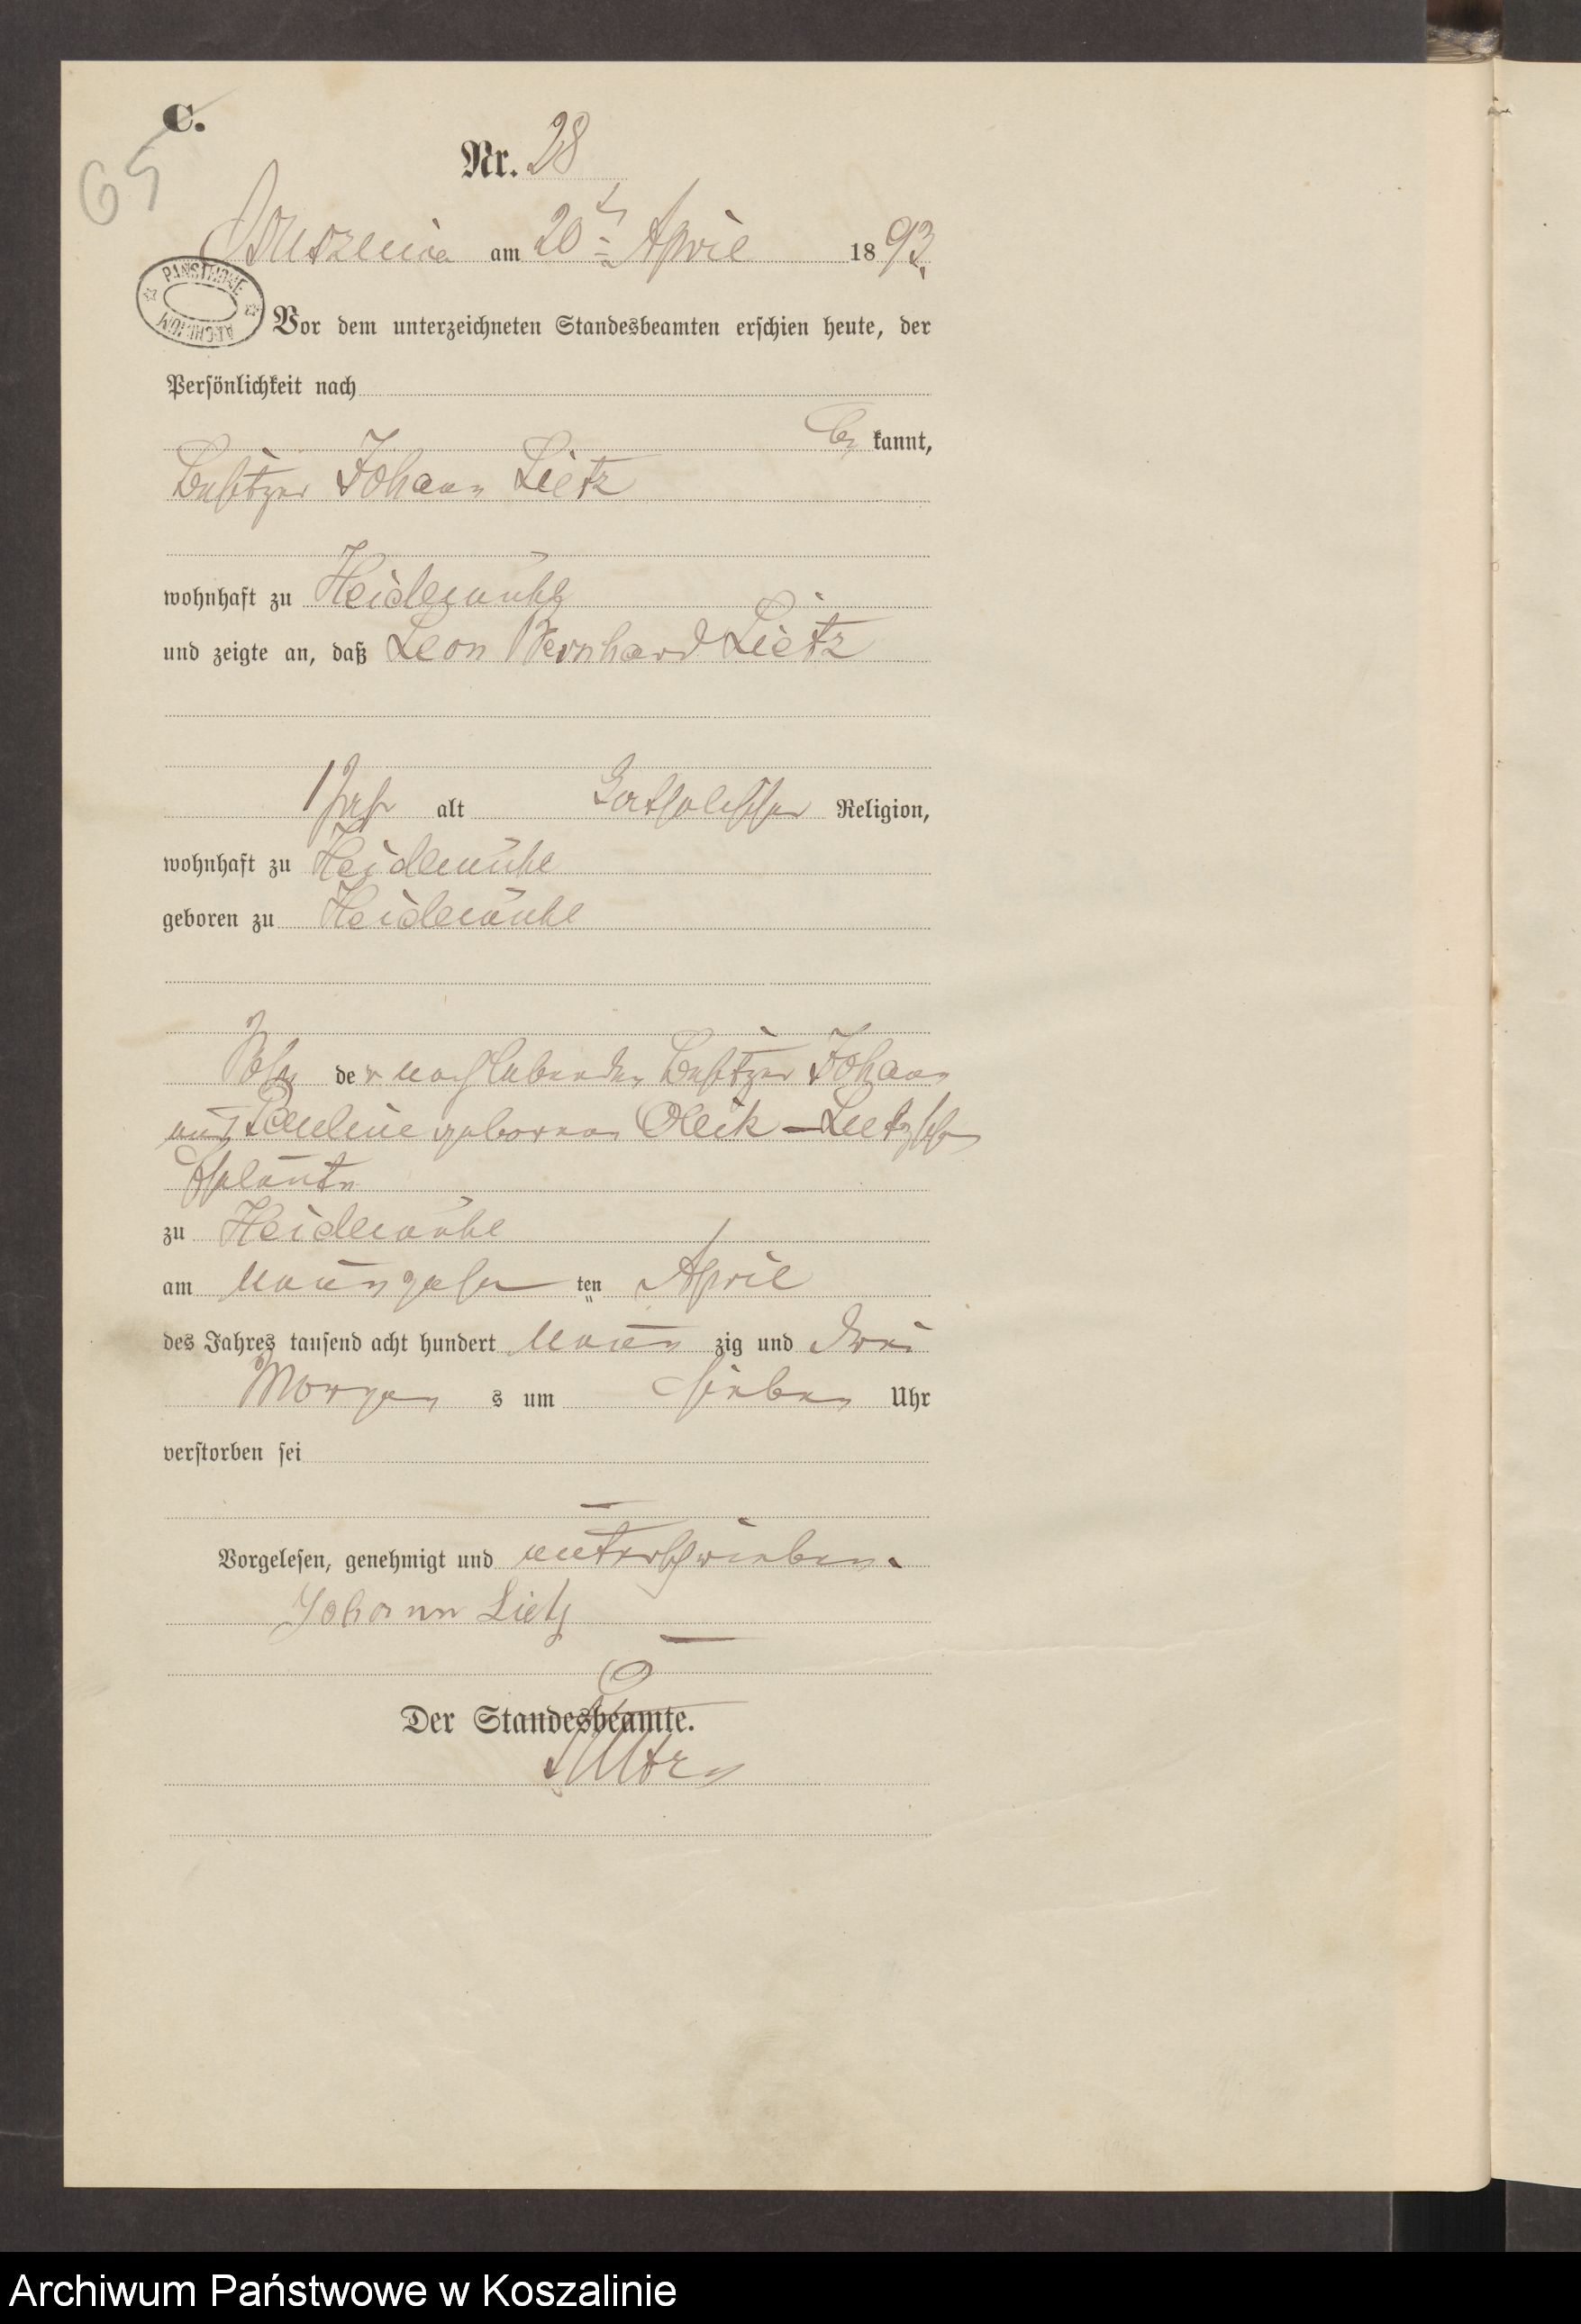 C.
65
Nr. 28
am 20ten April 1893.
PAŃSTWOWE ARCHIWUM
Vor dem unterzeichneten Standesbeamten erschien heute, der
Persönlichkeit nach
be kannt,
Besitzer Johann Lietz
wohnhaft zu Heidemühl
und zeigte an, daß Leon Bernhard Lietz
1 Jahr alt katholischer Religion,
wohnhaft zu Heidemühl
geboren zu Heidemühl
Sohn der noch lebenden Besitzer Johann
und Pauline geborenen Oleik - Lietzschen
Eheleute
zu Heidemühl
am neunzehn ten April
des Jahres tausend acht hundert neun zig und drei
Morgen s um sieben Uhr
verstorben sei
Vorgelesen, genehmigt und unterschrieben.
Johann Lietz
Der Standesbeamte.
Archiwum Państwowe w Koszalinie